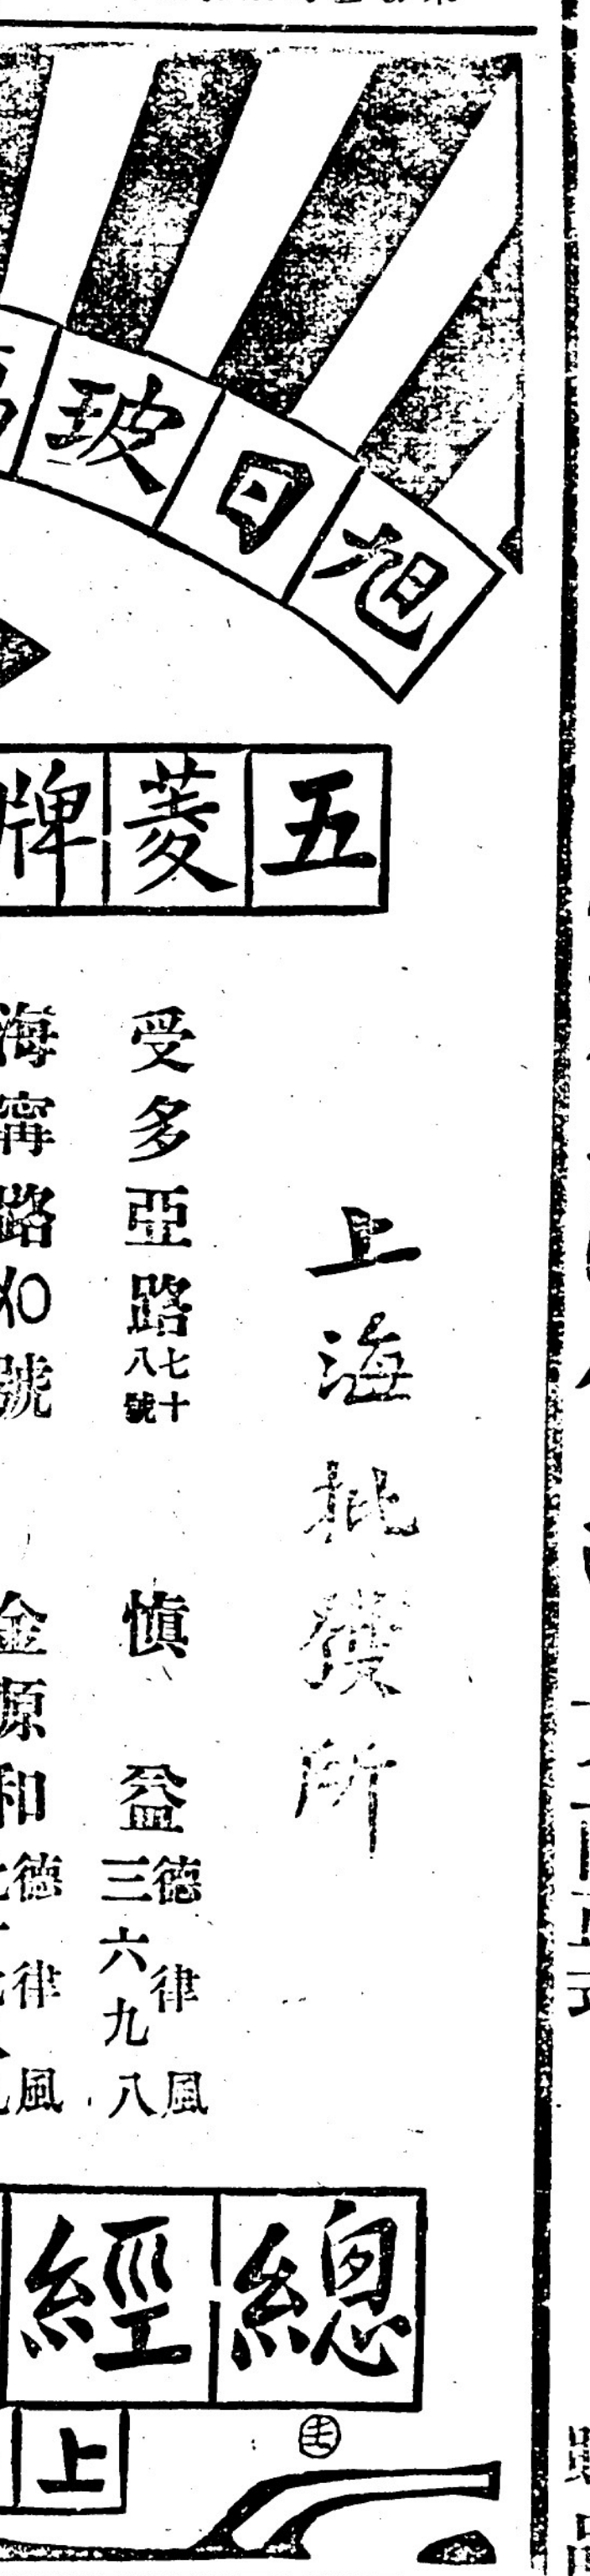 旭日玻
五菱牌
上海批發所
受多亞路七十八號
慎益德律風三六九八
海寗路
號
金源和德律風
總經
上